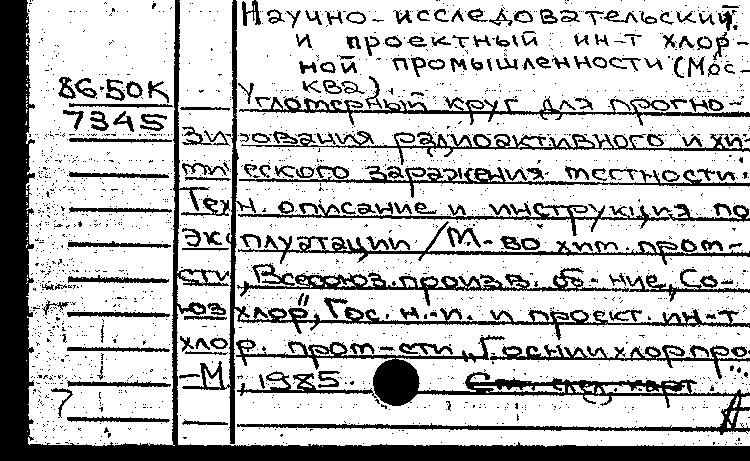 Научно-исследовательский
и проектный ин-т хлор-
ной промышленности (Мос-
ква).
86-50К
7345
Угломерный круг для прогно-
зирования радиоактивного и хи-
мического заражения местности.
Техн. описание и инструкция по
эксплуатации / М-во хим. пром-
сти, Всесоюз. произв. об-ние „Со-
юзхлор", Гос. н.-и. и проект. ин-т
хлор. пром-сти „Госниихлорпро
-М, 1985.
См. след. карт.